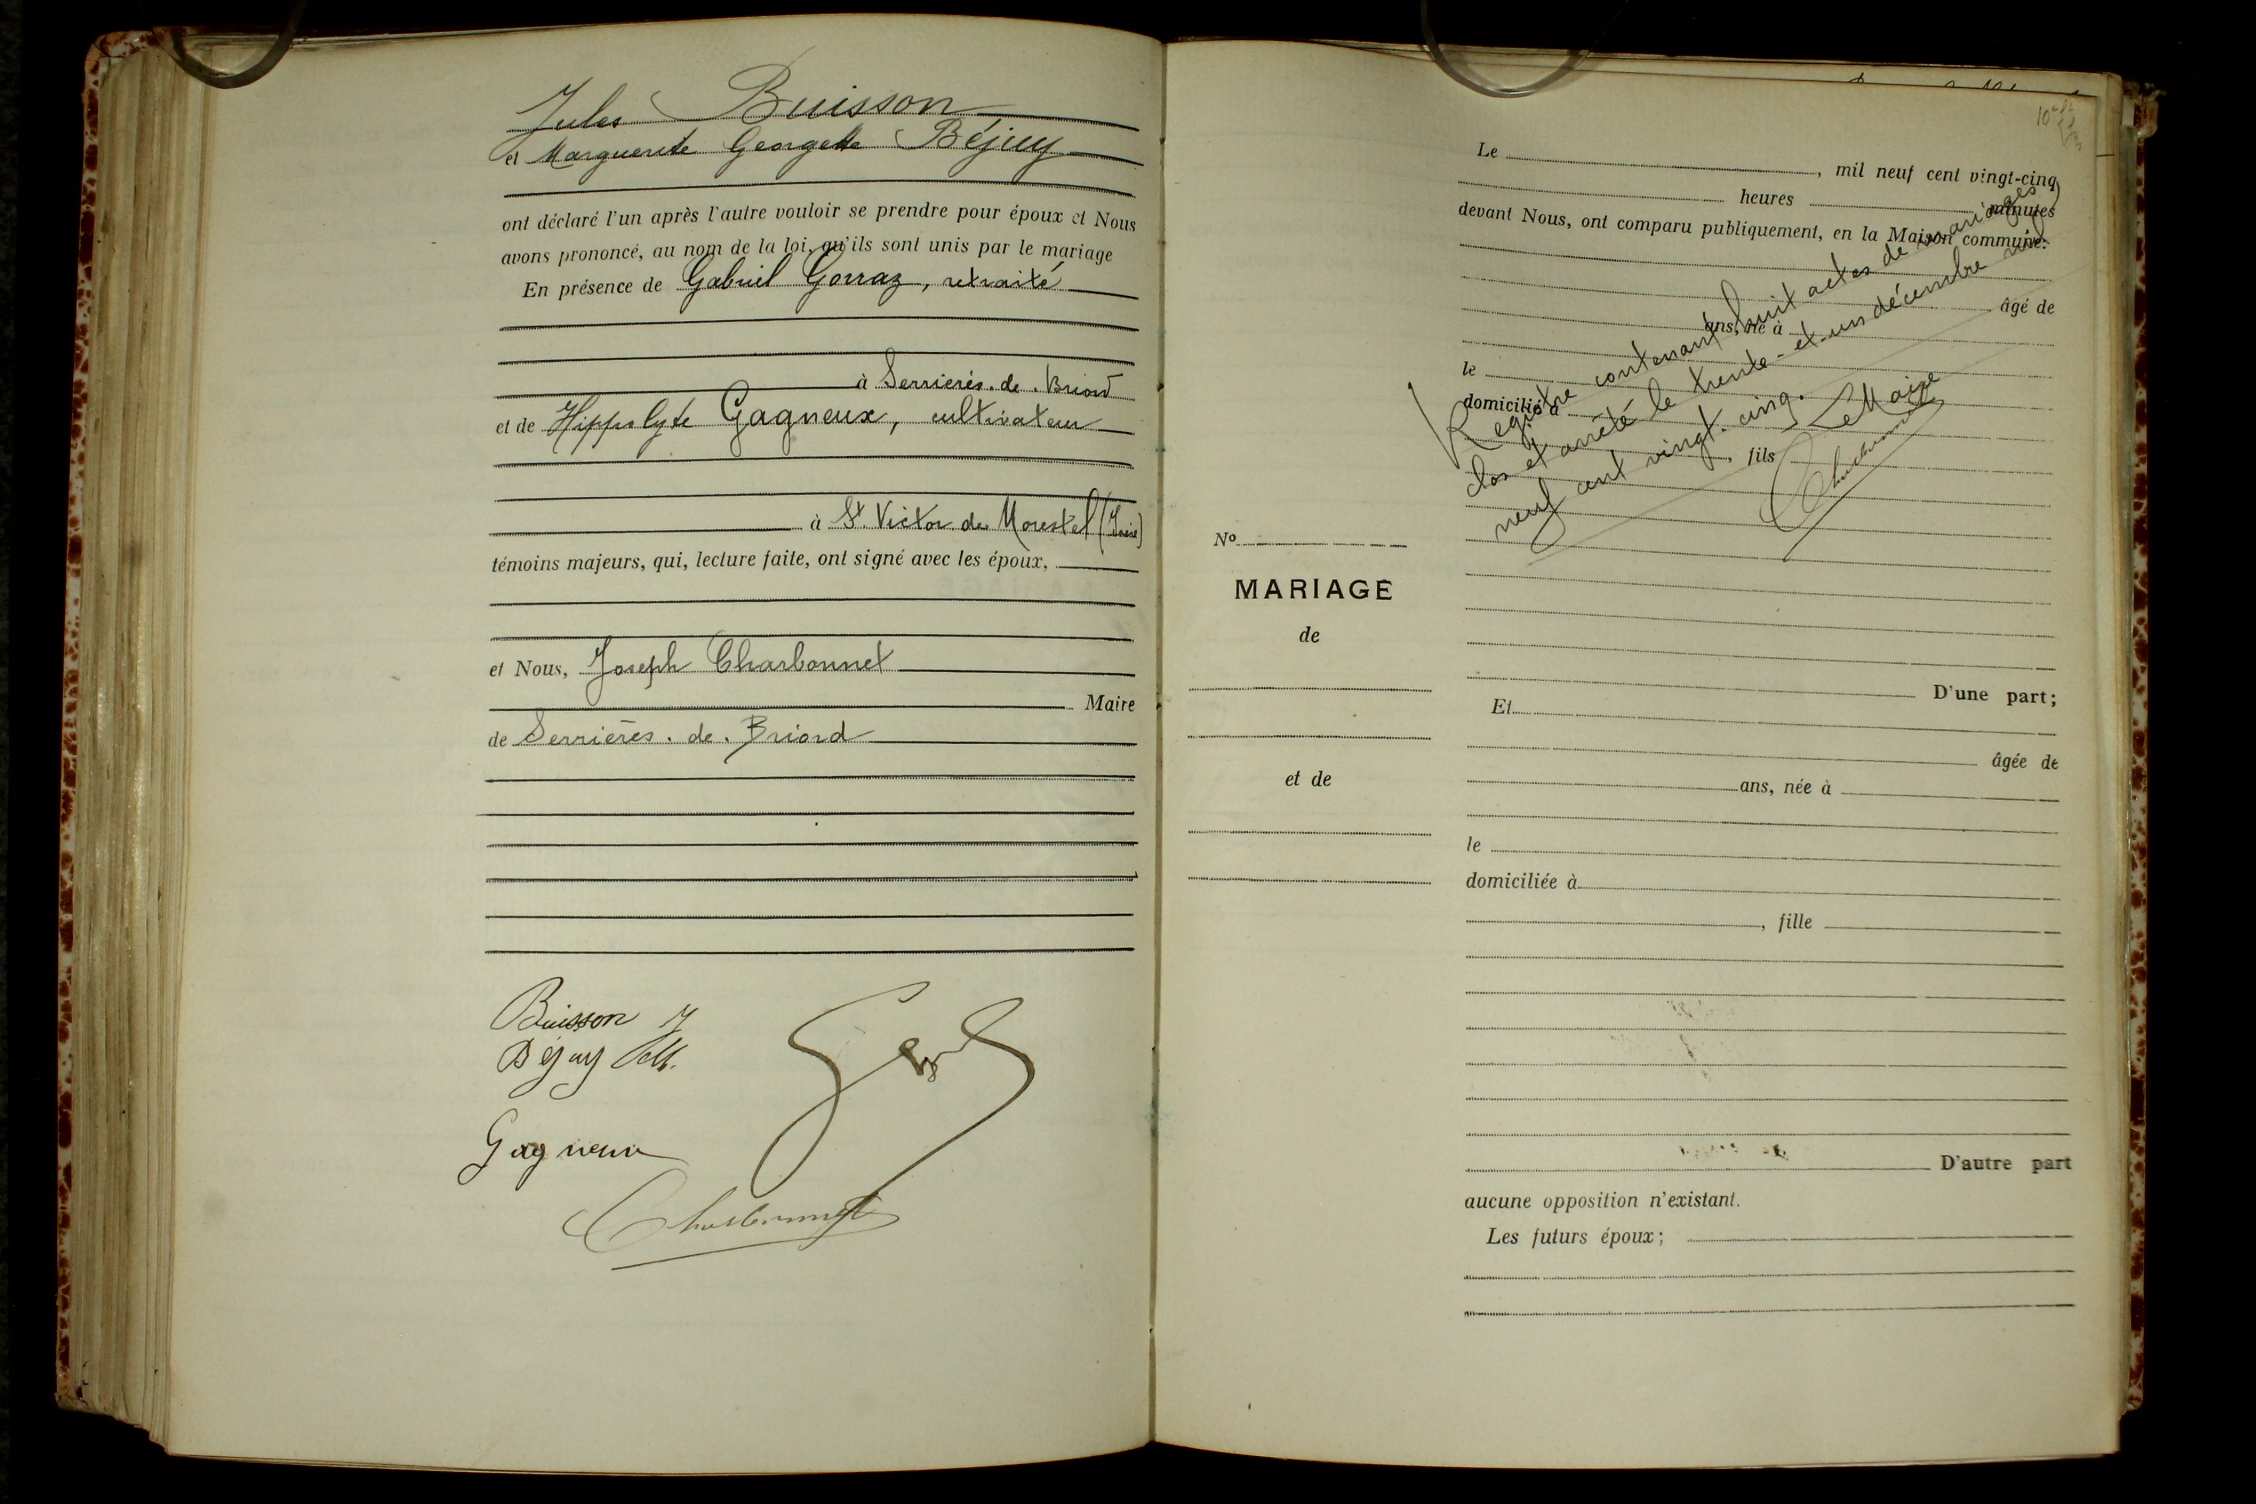 Jules Buisson
et Marguerite Georgette Béjuy
ont déclaré l'un après l'autre vouloir se prendre pour époux et Nous
avons prononcé, au nom de la loi, qu'ils sont unis par le mariage
En présence de Gabriel Gorraz, retraité
à Serrières. de. Briord
et de Hippolyte Gagneux, cultivateur
à St Victor de Morestel (Isère)
témoins majeurs, qui, lecture faite, ont signé avec les époux,
et Nous, Joseph Charbonnet
Maire
de Serrières. de. Briord
Buisson J
Béjuy
Gagneux
Charbonnet
Le , mil neuf cent vingt-cinq
heures minutes
devant Nous, ont comparu publiquement, en la Maison commune:
âgé de
ans, né à
le
domicilié à
, fils
Registre contenant huit actes de mariages
clos et arrêté le trente-et-un décembre mil
neuf cent vingt-cinq.
Le Maire
Charbonnet
No
MARIAGE
de
et de
D'une part;
Et
âgée de
ans, née à
le
domiciliée à
, fille
D'autre part
aucune opposition n'existant.
Les futurs époux;